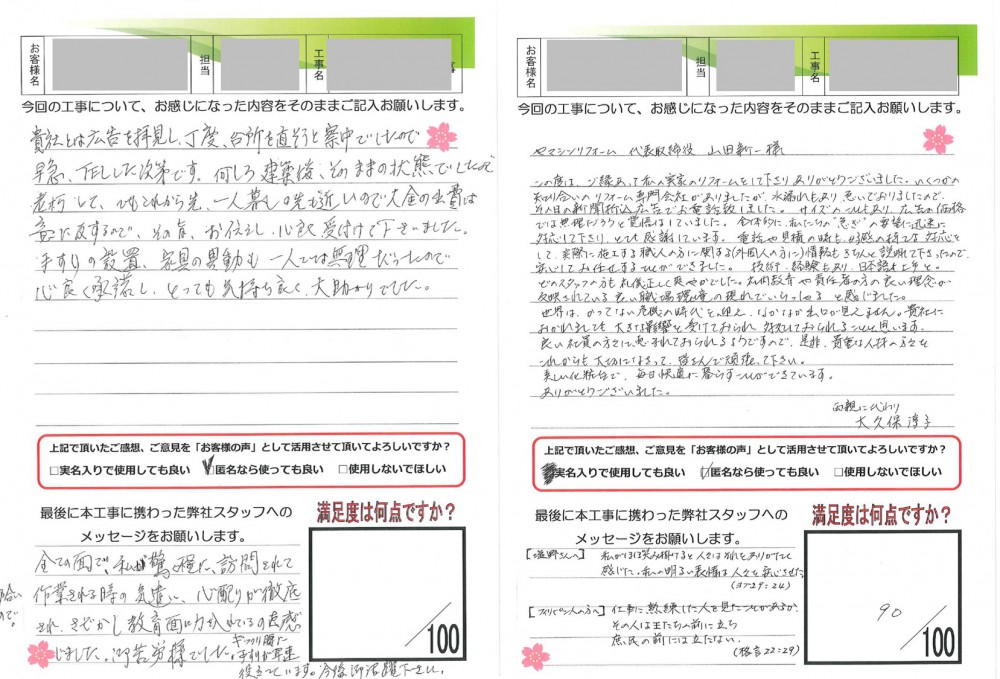 お客様名
担当
工事名
今回の工事について、お感じになった内容をそのままご記入お願いします。
貴社とは広告を拝見し、丁度、台所を直そうと案中でしたので
早急、TELした次第です。何しろ建築後、そのままの状態でしたので
老朽して、でもこれから先、一人暮し、先も近いので大金の出費は
意に反するので、その旨、お伝えし、心良く受付け下さいました。
手すりの設置、家具の異動も一人では無理だったので
心良く承諾し、とっても気持ち良く、大助かりでした。
上記で頂いたご感想、ご意見を「お客様の声」として活用させて頂いてよろしいですか？
□実名入りで使用しても良い □匿名なら使っても良い □使用しないでほしい
最後に本工事に携わった弊社スタッフへの
メッセージをお願いします。
全ての面で、私が驚く程に、訪問されて
作業される時の気遣い、心配りが徹底
され、さぞかし教育面に力が入れているのを感
じました。御苦労様でした。
役立っています。今後御活躍下さい。
満足度は何点ですか？
/100
お客様名
担当
工事名
今回の工事について、お感じになった内容をそのままご記入お願いします。
ヤマシンリフォーム 代表取締役 山田新一様
この度は、ご縁あって私の実家のリフォームをして下さりありがとうございました。いくつかの
知り合いのリフォーム専門会社がありましたが、水漏れもあり急いでおりましたので、
その日の新聞折込広告でお電話致しました。サイズのこともあり、広告の価格
では無理だろうと覚悟はしていました。全体的に、私たちの"急ぎ"の要望に迅速に
対応して下さり、とても感謝しています。電話や見積の時も、好感の持てる対応を
して、実際に施工する職人の方に関する(外国人の方に)情報もきちんと説明下さったので、
安心してお任せすることができました。技術・経験もあり、日本語も上手で。
どのスタッフの方も礼儀正しく爽やかでした。社内教育や責任者の方の良い理念が
反映されている良い職場環境の現れでいらっしゃると感じました。
世界は、かつてない危機の時代を迎え、なかなか出口が見えません。貴社に
おかれましても大きな影響を受けておられ、対処しておられることと思います。
良い社員の方々に恵まれておられるようですので、是非、貴重な人材の方々を
これからも大切になさって、皆さんで頑張って下さい。
美しい化粧台で、毎日快適に暮らすことができています。
ありがとうございました。
両親に代わり
大久保淳子
上記で頂いたご感想、ご意見を「お客様の声」として活用させて頂いてよろしいですか？
実名入りで使用しても良い □匿名なら使っても良い □使用しないでほしい
最後に本工事に携わった弊社スタッフへの
メッセージをお願いします。
[塩野さんへ] 私がほほ笑み掛けると人々はそれをありがたく
感じた。私の明るい表情は人々を安心させた
(ヨブ29:24)
[フィリピン人の方へ] 仕事に熟練した人を見たことがあるか。
その人は王たちの前に立ち
庶民の前には立たない。
(格言22:29)
満足度は何点ですか？
90/100